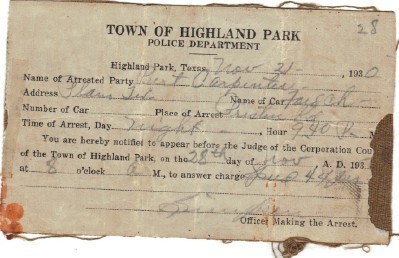 28
TOWN OF HIGHLAND PARK
POLICE DEPARTMENT
Highland Park, Texas Nov 21 - , 1930
Name of Arrested Party Bert Carpenter
Address Plano Tex. Name of Car
Number of Car Place of Arrest Preston
Time of Arrest, Day night - , Hour 9 40 P. M
You are hereby notified to appear before the Judge of the Corporation Cou
of the Town of Highland Park, on the 28th day of Nov , A. D. 193
at 8 o'clock A M., to answer charge
Officer Making the Arrest.